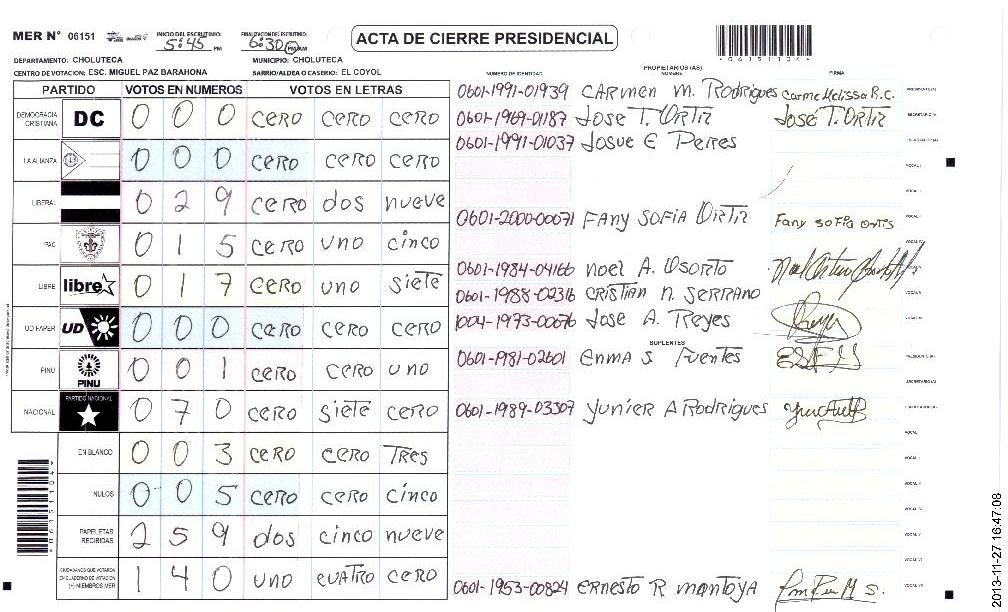 MER N° 06151
INICIO DEL ESCRUTINIO: 5:45 PM
FINALIZACION DEL ESCRUTINIO: 6:30 PM AM
ACTA DE CIERRE PRESIDENCIAL
*06151104*
DEPARTAMENTO: CHOLUTECA
MUNICIPIO: CHOLUTECA
CENTRO DE VOTACION: ESC. MIGUEL PAZ BARAHONA
BARRIO/ALDEA O CASERIO: EL COYOL
PARTIDO VOTOS EN NUMEROS VOTOS EN LETRAS
DEMOCRACIA CRISTIANA DC 0 0 0 CERO CERO CERO
LA ALIANZA 0 0 0 CERO CERO CERO
LIBERAL 0 2 9 CERO dos nueve
PAC 0 1 5 CERO UNO CINCO
LIBRE libre 0 1 7 CERO UNO SIETE
UD FAPER UD 0 0 0 CERO CERO CERO
PINU PINU 0 0 1 CERO CERO UNO
NACIONAL PARTIDO NACIONAL 0 7 0 CERO SIETE CERO
EN BLANCO 0 0 3 CERO CERO TRES
NULOS 0 0 5 CERO CERO CINCO
PAPELETAS RECIBIDAS 2 5 9 dos cinco nueve
CIUDADANOS QUE VOTARON EN CUADERNO DE VOTACION (+) MIEMBROS MER 1 4 0 UNO CUATRO CERO
NUMERO DE IDENTIDAD
PROPIETARIOS (AS)
NOMBRE
FIRMA
0601-1991-01939 CARMEN M. Rodrigues Carme Melissa R.C.
0601-1969-01187 JOSE T. ORTIZ JOSE T. ORTIZ
0601-1991-01037 Josue E Peres
0601-2000-00071 FANY SOFIA ORTIZ Fany SOFIA ortis
0601-1984-04166 Noel A. Osorto
0601-1988-02316 CRISTIAN N. SERRANO
1004-1973-00076 Jose A. Reyes
SUPLENTES
0601-1981-02601 Enma S Fuentes
0601-1989-03307 Yunier A Rodrigues
0601-1953-00824 ERNESTO R MONTOYA
*06151104*
2013-11-27 16:47:08